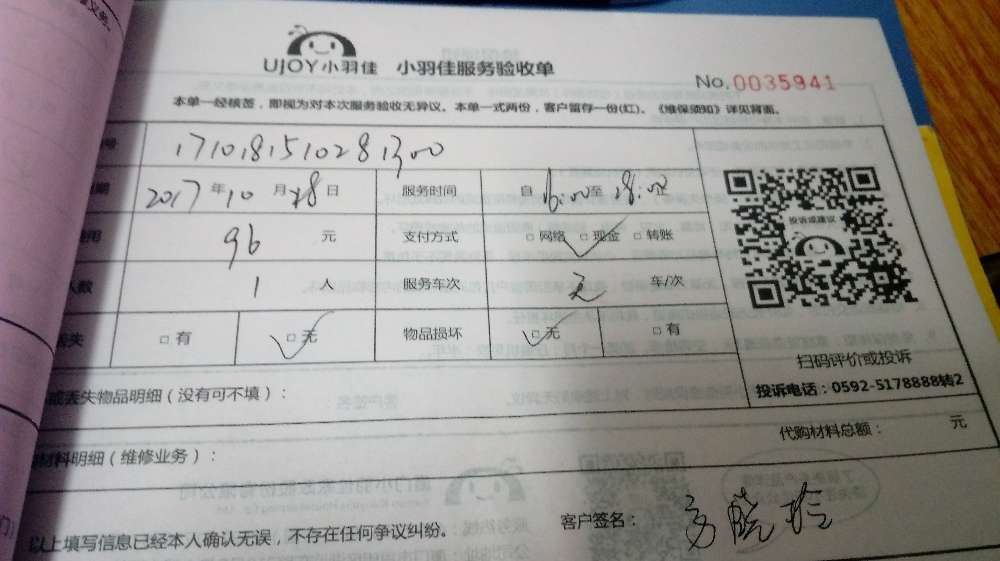 UJOY小羽佳 小羽佳服务验收单
No.0035941
本单一经核签，即视为对本次服务验收无异议。本单一式两份，客户留存一份(红)。《维保须知》详见背面。
号 1710181510281300
期 2017 年 10 月 18 日 服务时间 自 16:00 至 18:00
费用 96 元 支付方式 □ 网络 □ 现金 □ 转账
人数 1 人 服务车次 无 车/次
丢失 □ 有 □ 无 物品损坏 □ 无 □ 有
投诉或建议
扫码评价或投诉
投诉电话：0592-5178888转2
或丢失物品明细（没有可不填）：
代购材料总额： 元
材料明细（维修业务）：
客户签名：
以上填写信息已经本人确认无误，不存在任何争议纠纷。